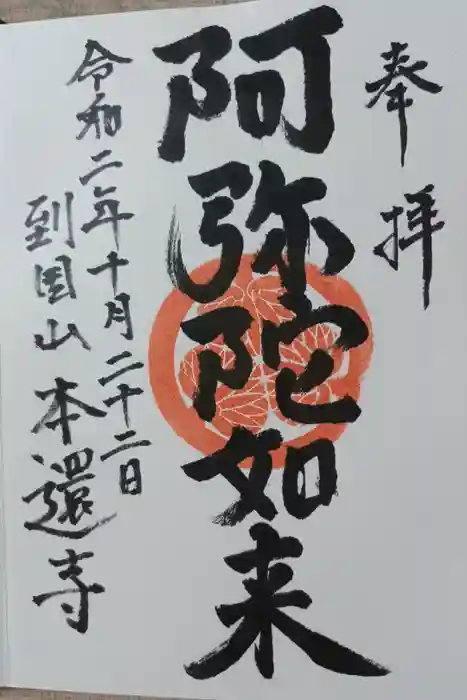 奉拝
阿弥陀如来
令和二年十月二十二日
到岸山 本還寺